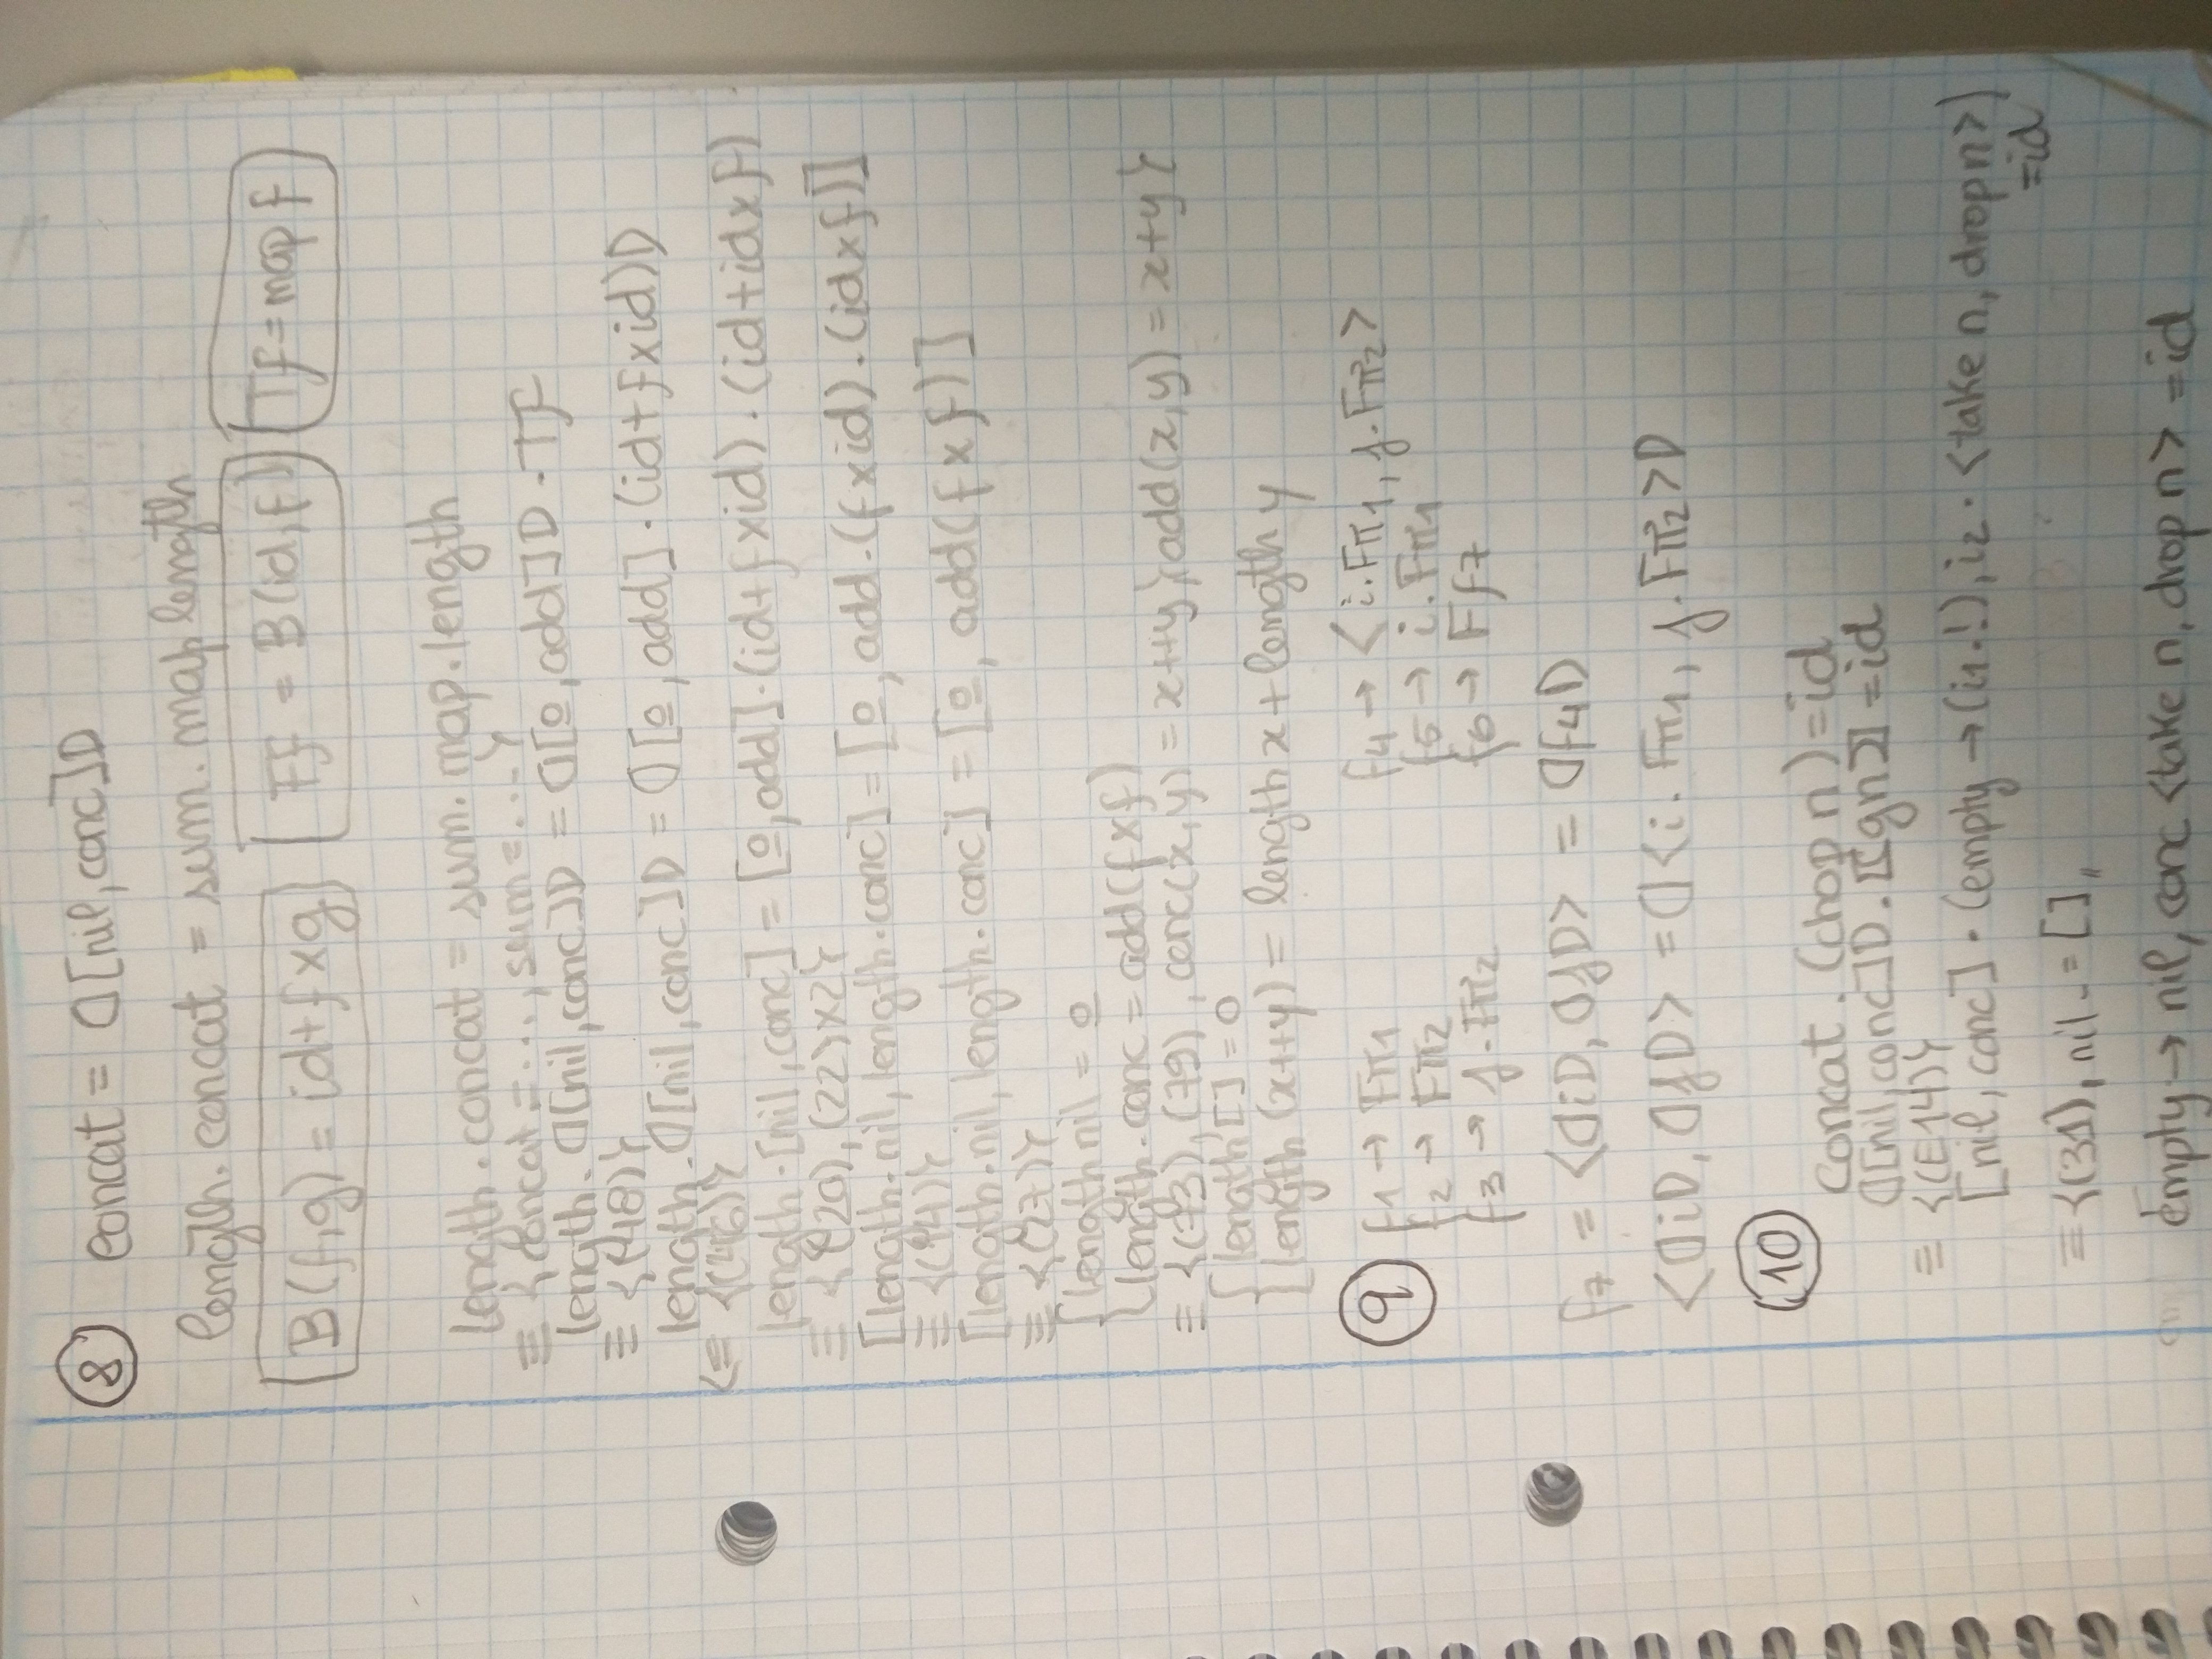 8 concat = ⦇[nil, conc]⦈
length. concat = sum. map length
B(f,g) = id+f×g Ff = B(id,f) Tf = map f
length. concat = sum. map. length
≡ {concat = ..., sum = ...}
length. ⦇[nil, conc]⦈ = ⦇[0, add]⦈ . Tf
≡ {(48)}
length. ⦇[nil, conc]⦈ = ⦇[0, add] . (id+f×id)⦈
<≡ {(46)}
length. [nil, conc] = [0, add] . (id+f×id) . (id+id×f)
≡ {(20), (22)×2}
[length. nil, length. conc] = [0, add. (f×id) . (id×f)]
≡ {(14)}
[length. nil, length. conc] = [0, add(f×f)]
≡ {(27)}
{ length nil = 0
{ length. conc = add(f×f)
≡ {(73), (79), conc(x,y) = x++y; add(x,y) = x+y}
{ length [] = 0
{ length (x++y) = length x + length y
9 f1 → Fπ1 f4 → <i.Fπ1, j.Fπ2>
f2 → Fπ2 f5 → i.Fπ1
f3 → j.Fπ2 f6 → F f7
f7 = <⦇i⦈, ⦇j⦈> = ⦇f4⦈
<⦇i⦈, ⦇j⦈> = ⦇<i. Fπ1, j. Fπ2>⦈
10
concat. (chop n) = id
⦇[nil, conc]⦈ . [(gn)] = id
≡ {(E14)}
[nil, conc] . (empty → (i1.!), i2 . <take n, drop n>)
= id
≡ {(31), nil _ = [],
empty → nil, conc <take n, drop n> = id